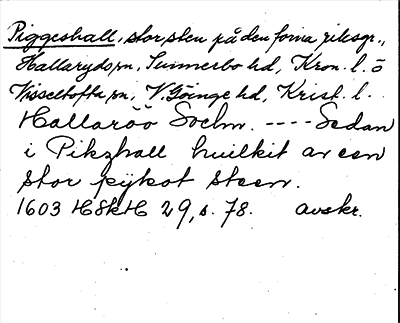 Piggeshall, stor sten på den forna riksgr.,
Hallaryds sn, Sunnerbo hd, Kron. l. o
Visseltofta sn, V. Göinge hd, Krist. l.
Hallaröö Sochn. ---- Sedan
i Pikzhall huilkit är een
stor pykot steen.
1603 HSkH 29, s. 78. avskr.